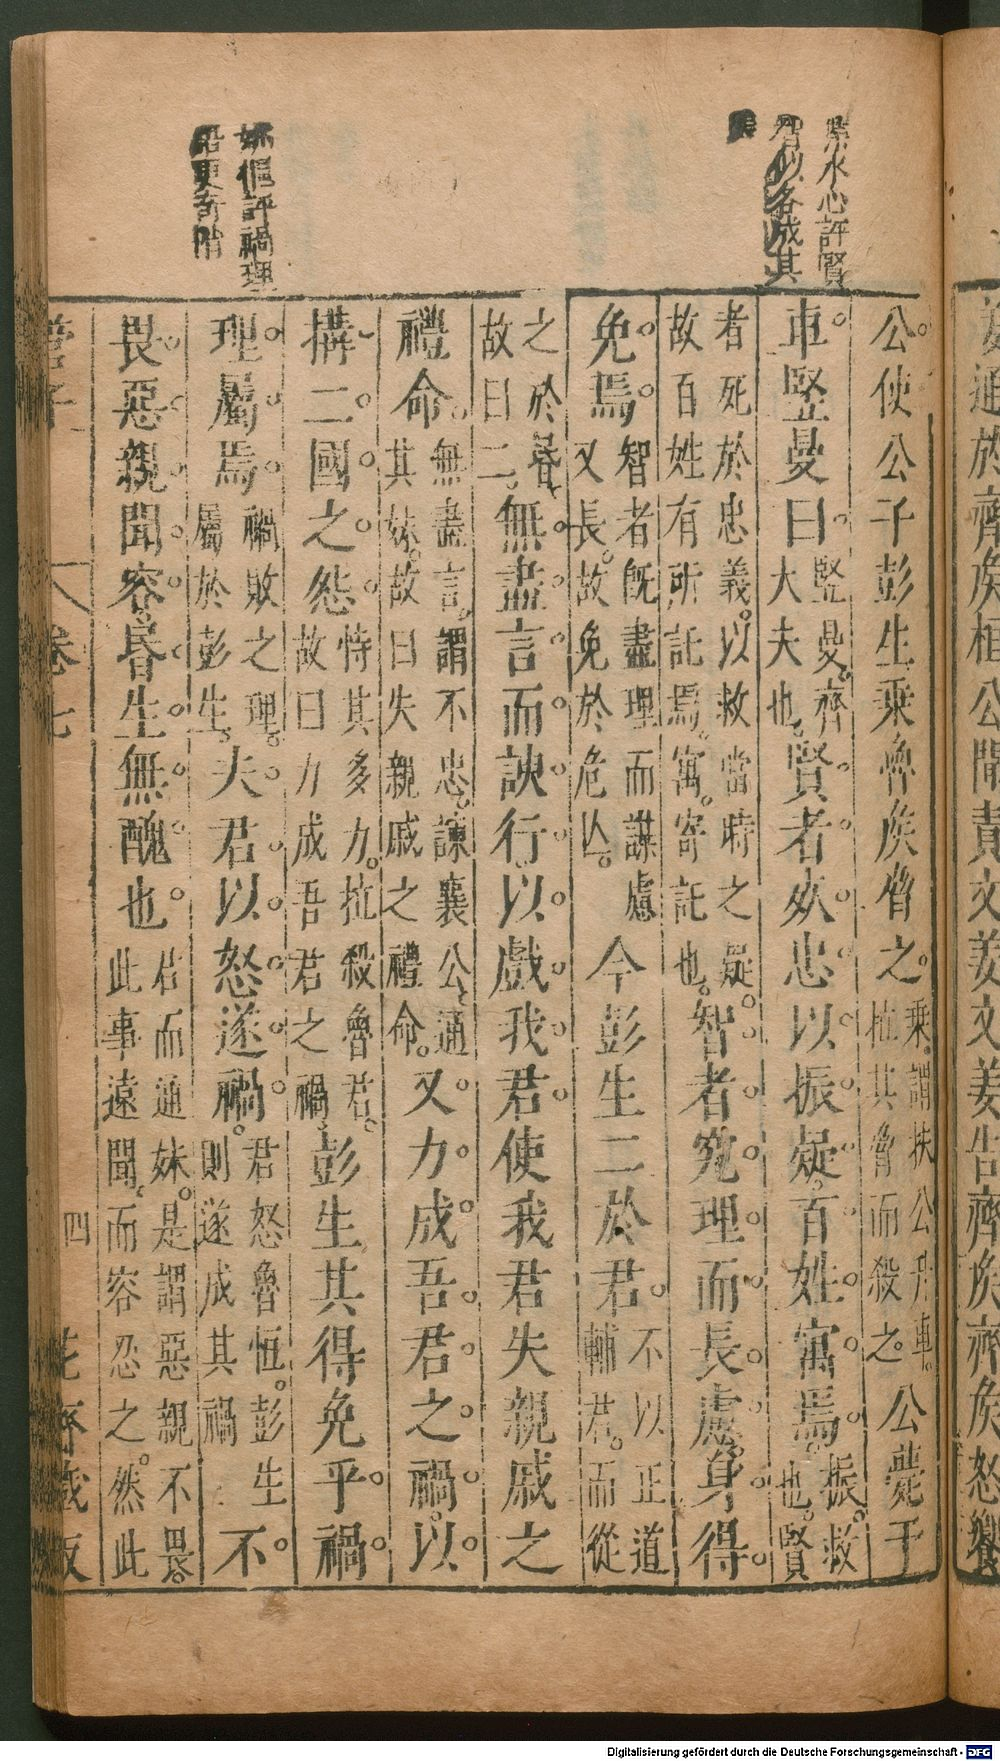 水心評賢
智以各成其
評禍理
更奇
公使公子彭生乘魯侯脅之乘謂扶公升車拉其脅而殺之公薨于
車豎曼曰豎曼齊大夫也賢者死忠以振疑百姓寓焉振救也賢
者死於忠義以救當時之疑故百姓有所託焉寓寄託也智者究理而長慮身得
免焉智者既盡理而謀慮又長故免於危亾今彭生二於君不以正道輔君而從
之於昏故曰二無盡言而諛行以戲我君使我君失親戚之
禮命無盡言謂不忠諫襄公通其妹故曰失親戚之禮命又力成吾君之禍以
構二國之怨恃其多力拉殺魯君故曰力成吾君之禍彭生其得免乎禍
理屬焉禍敗之理屬於彭生夫君以怒遂禍君怒魯恒彭生則遂成其禍不
畏惡親聞容昏生無醜也君而通妹是謂惡親不畏此事遠聞而容忍之然此
管子 卷七 四 花齋藏板
姜通於齊侯桓公聞責文姜文姜告齊侯齊侯怒饗
Digitalisierung gefördert durch die Deutsche Forschungsgemeinschaft - DFG